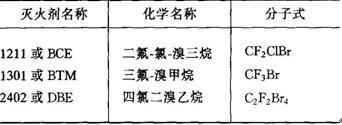 灭火剂名称 化学名称 分子式
1211 或 BCE 二氟-氯-溴三烷 CF₂ClBr
1301 或 BTM 三氟-溴甲烷 CF₃Br
2402 或 DBE 四氯二溴乙烷 C₂F₂Br₄